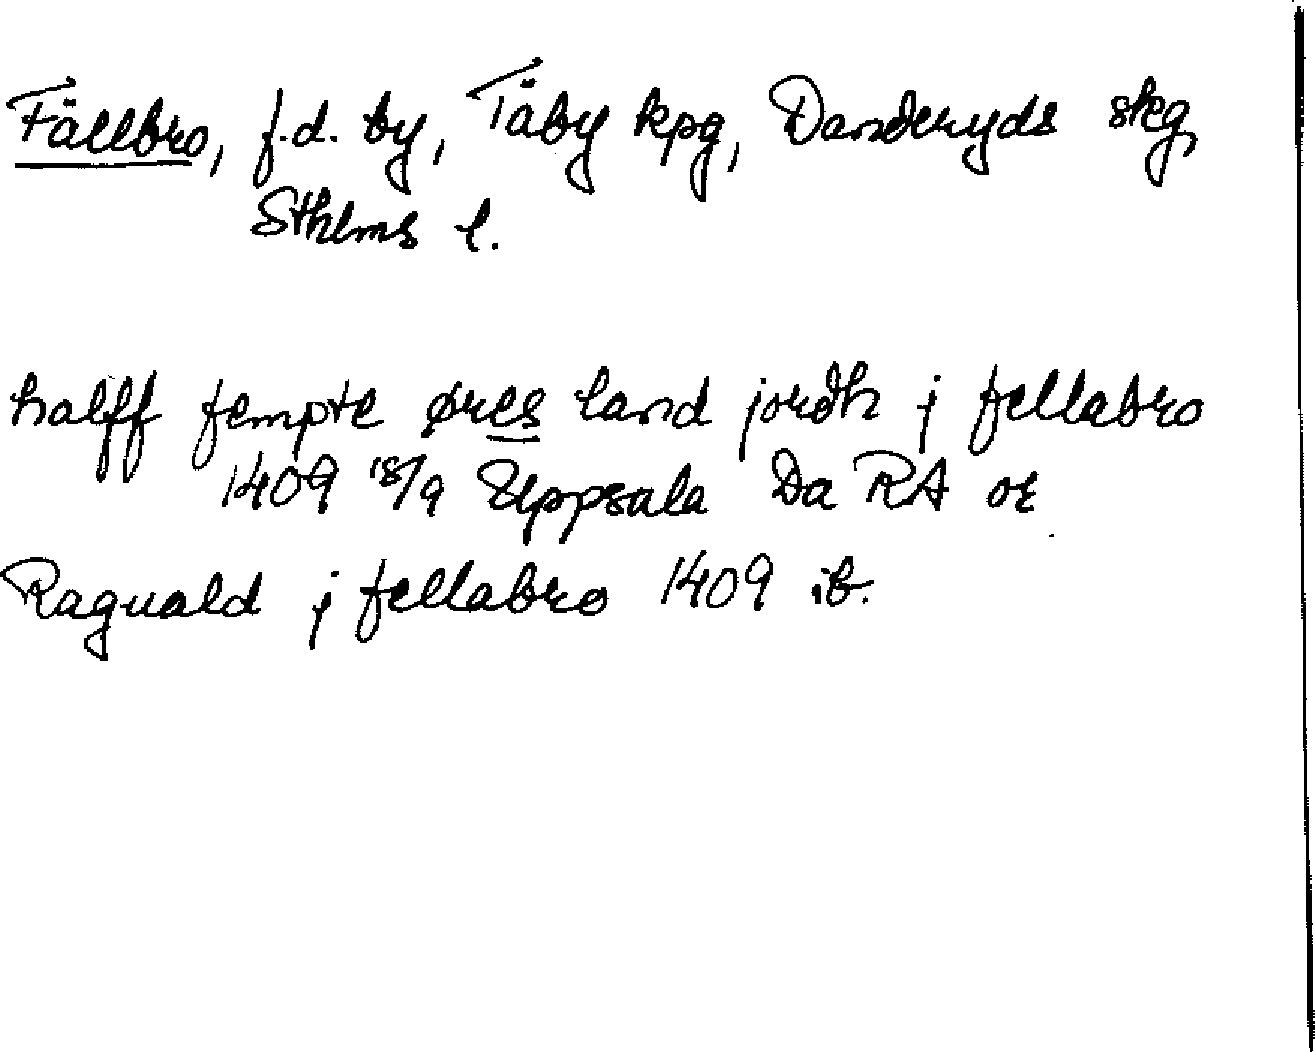 Fällbro, f.d. by, Täby kpg, Danderyds skg,
Sthlms l.
halff fempte øres land jordh j fellabro
1409 18/9 Uppsala Da RA or
Raguald j fellabro 1409 ib.